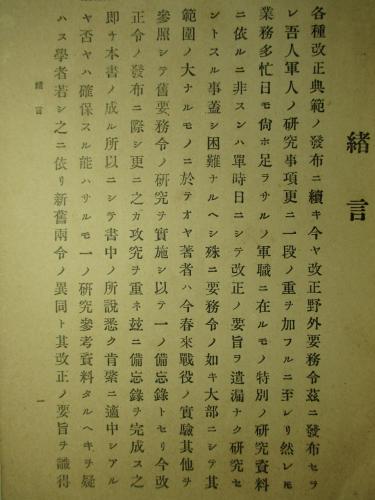 緒言
各種改正典範ノ發布ニ續キ今ヤ改正野外要務令玆ニ發布セラ
レ吾人軍人ノ研究事項更ニ一段ノ重ヲ加フルニ至レリ然レ𪜈
業務多忙日モ尙ホ足ラサルノ軍職ニ在ルモノ特別ノ研究資料
ニ依ルニ非スンハ單時日ニシテ改正ノ要旨ヲ遺漏ナク研究セ
ントスル事蓋シ困難ナルヘシ殊ニ要務令ノ如キ大部ニシテ其
範圍ノ大ナルモノニ於テオヤ著者ハ今春來戰役ノ實驗其他ヲ
參照シテ舊要務令ノ研究ヲ實施シ以テ一ノ備忘錄トセリ今改
正令ノ發布ニ際シ更ニ之カ攻究ヲ重ネ玆ニ備忘錄ヲ完成ス之
即チ本書ノ成ル所以ニシテ書中ノ所說悉ク肯綮ニ適中シアル
ヤ否ヤハ確保スル能ハサルモ一ノ研究參考資料タルヘキヲ疑
ハス學者若シ之ニ依リ新舊兩令ノ異同ト其改正ノ要旨ヲ識得
緒言
一